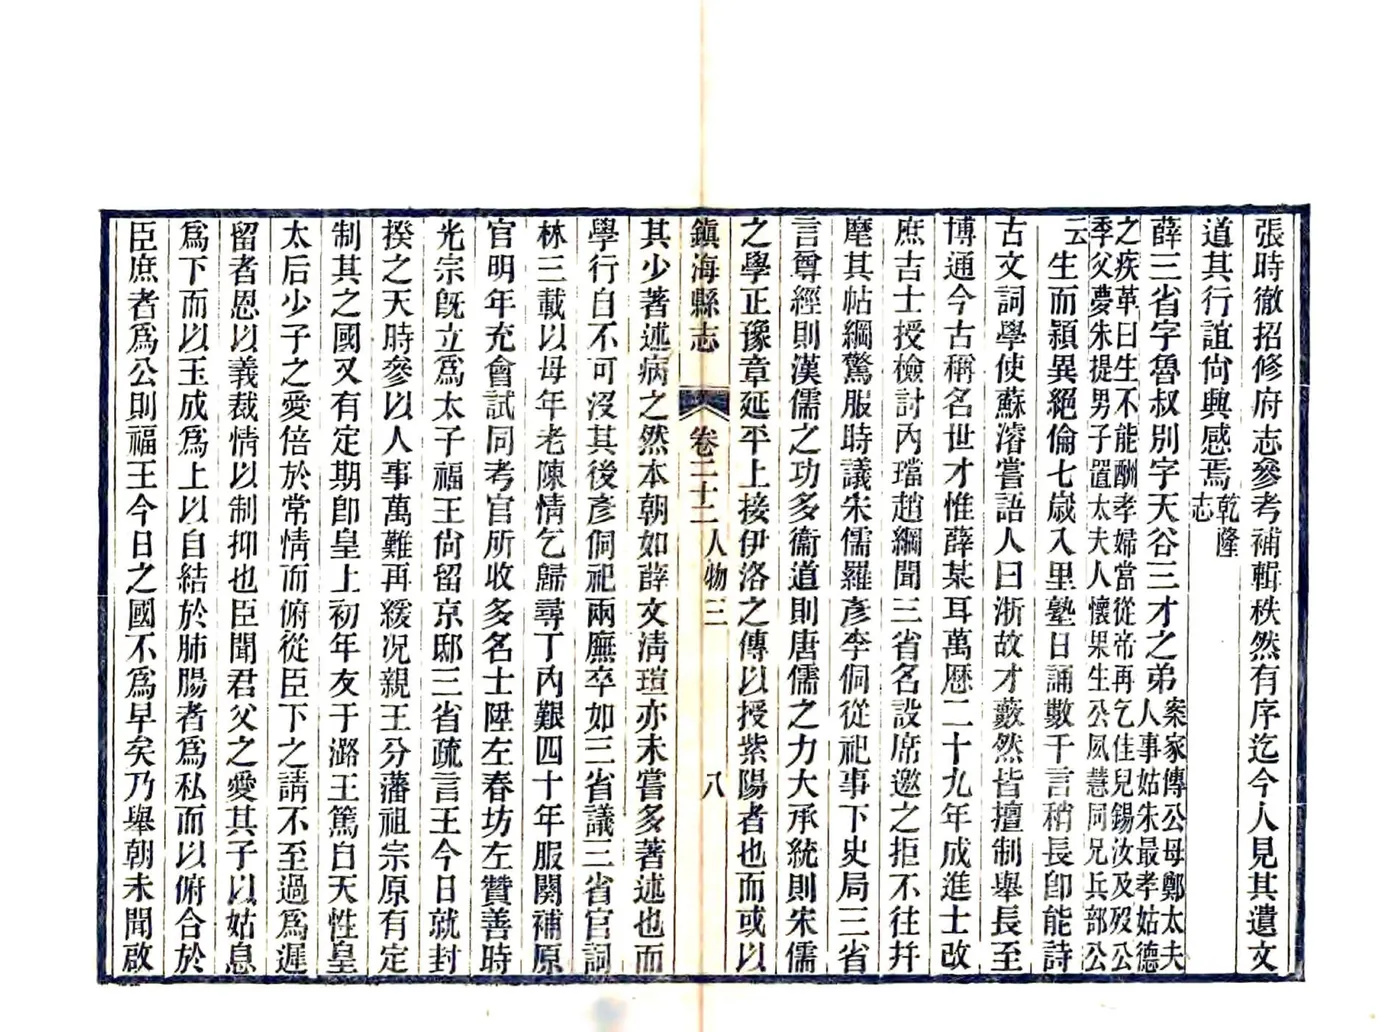 張時徹招修府志參考補輯秩然有序迄今人見其遺文
道其行誼尙興感焉乾隆志
薛三省字魯叔别字天谷三才之弟案家傳公母鄭太夫人事姑朱最孝姑德
之疾革曰生不能酬孝婦當從帝再乞佳兒錫汝及歿公
季父夢朱提男子置太夫人懷果生公夙慧同兄兵部公
云生而穎異絕倫七歲入里塾日誦數千言稍長卽能詩
古文詞學使蘇濬嘗語人曰浙故才藪然皆擅制舉長至
博通今古稱名世才惟薛某耳萬厯二十九年成進士改
庶吉士授檢討內璫趙綱聞三省名設席邀之拒不往幷
麾其帖綱驚服時議朱儒羅彥李侗從祀事下史局三省
言尊經則漢儒之功多衞道則唐儒之力大承統則宋儒
之學正豫章延平上接伊洛之傳以授紫陽者也而或以
鎭海縣志 卷二十二 人物三 八
其少著述病之然本朝如薛文淸瑄亦未嘗多著述也而
學行自不可沒其後彥侗祀兩廡卒如三省議三省官詞
林三載以母年老陳情乞歸尋丁內艱四十年服闋補原
官明年充會試同考官所收多名士陞左春坊左贊善時
光宗旣立爲太子福王尙留京邸三省疏言王今日就封
揆之天時參以人事萬難再緩况親王分藩祖宗原有定
制其之國又有定期卽皇上初年友于潞王篤自天性皇
太后少子之愛倍於常情而俯從臣下之請不至過爲遲
留者恩以義裁情以制抑也臣聞君父之愛其子以姑息
爲下而以玉成爲上以自結於肺腸者爲私而以俯合於
臣庶者爲公則福王今日之國不爲早矣乃舉朝未聞啟